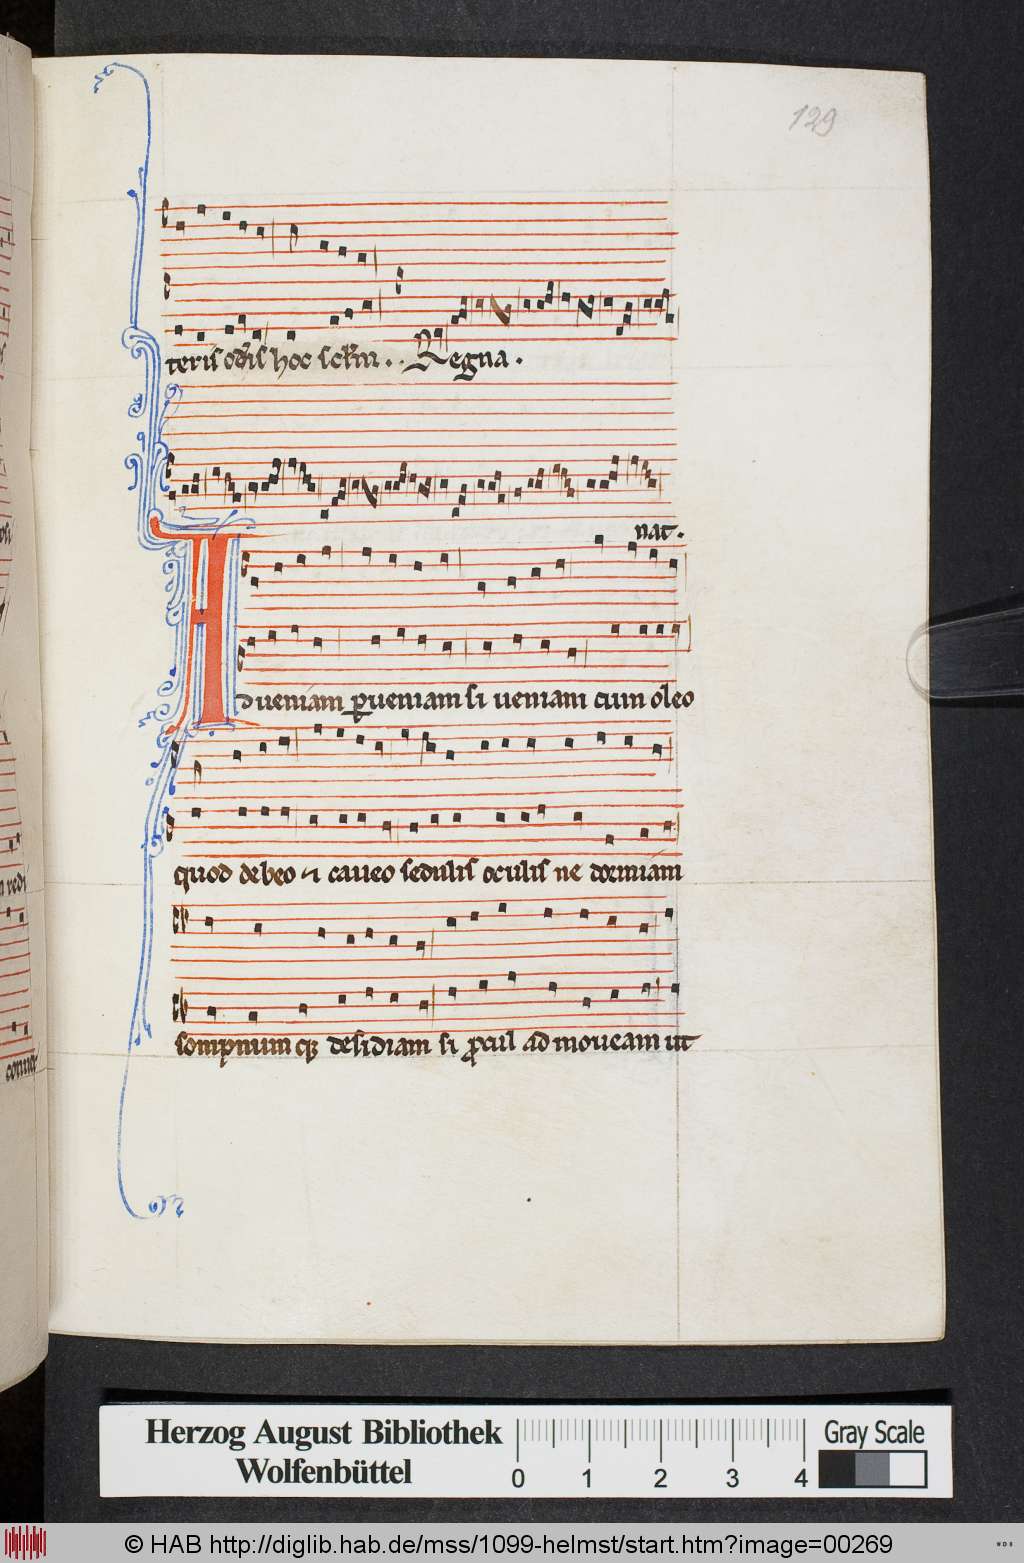 129
teris odis hoc sclm . . Regna .
nat .
Adveniam pueniam si ueniam cum oleo
quod debeo et caveo sedulis oculis ne dormiam
sompnum q3 desidiam si procul ad moveam ut
n redi
connet
Herzog August Bibliothek
Wolfenbüttel
0 1 2 3 4
Gray Scale
© HAB http://diglib.hab.de/mss/1099-helmst/start.htm?image=00269